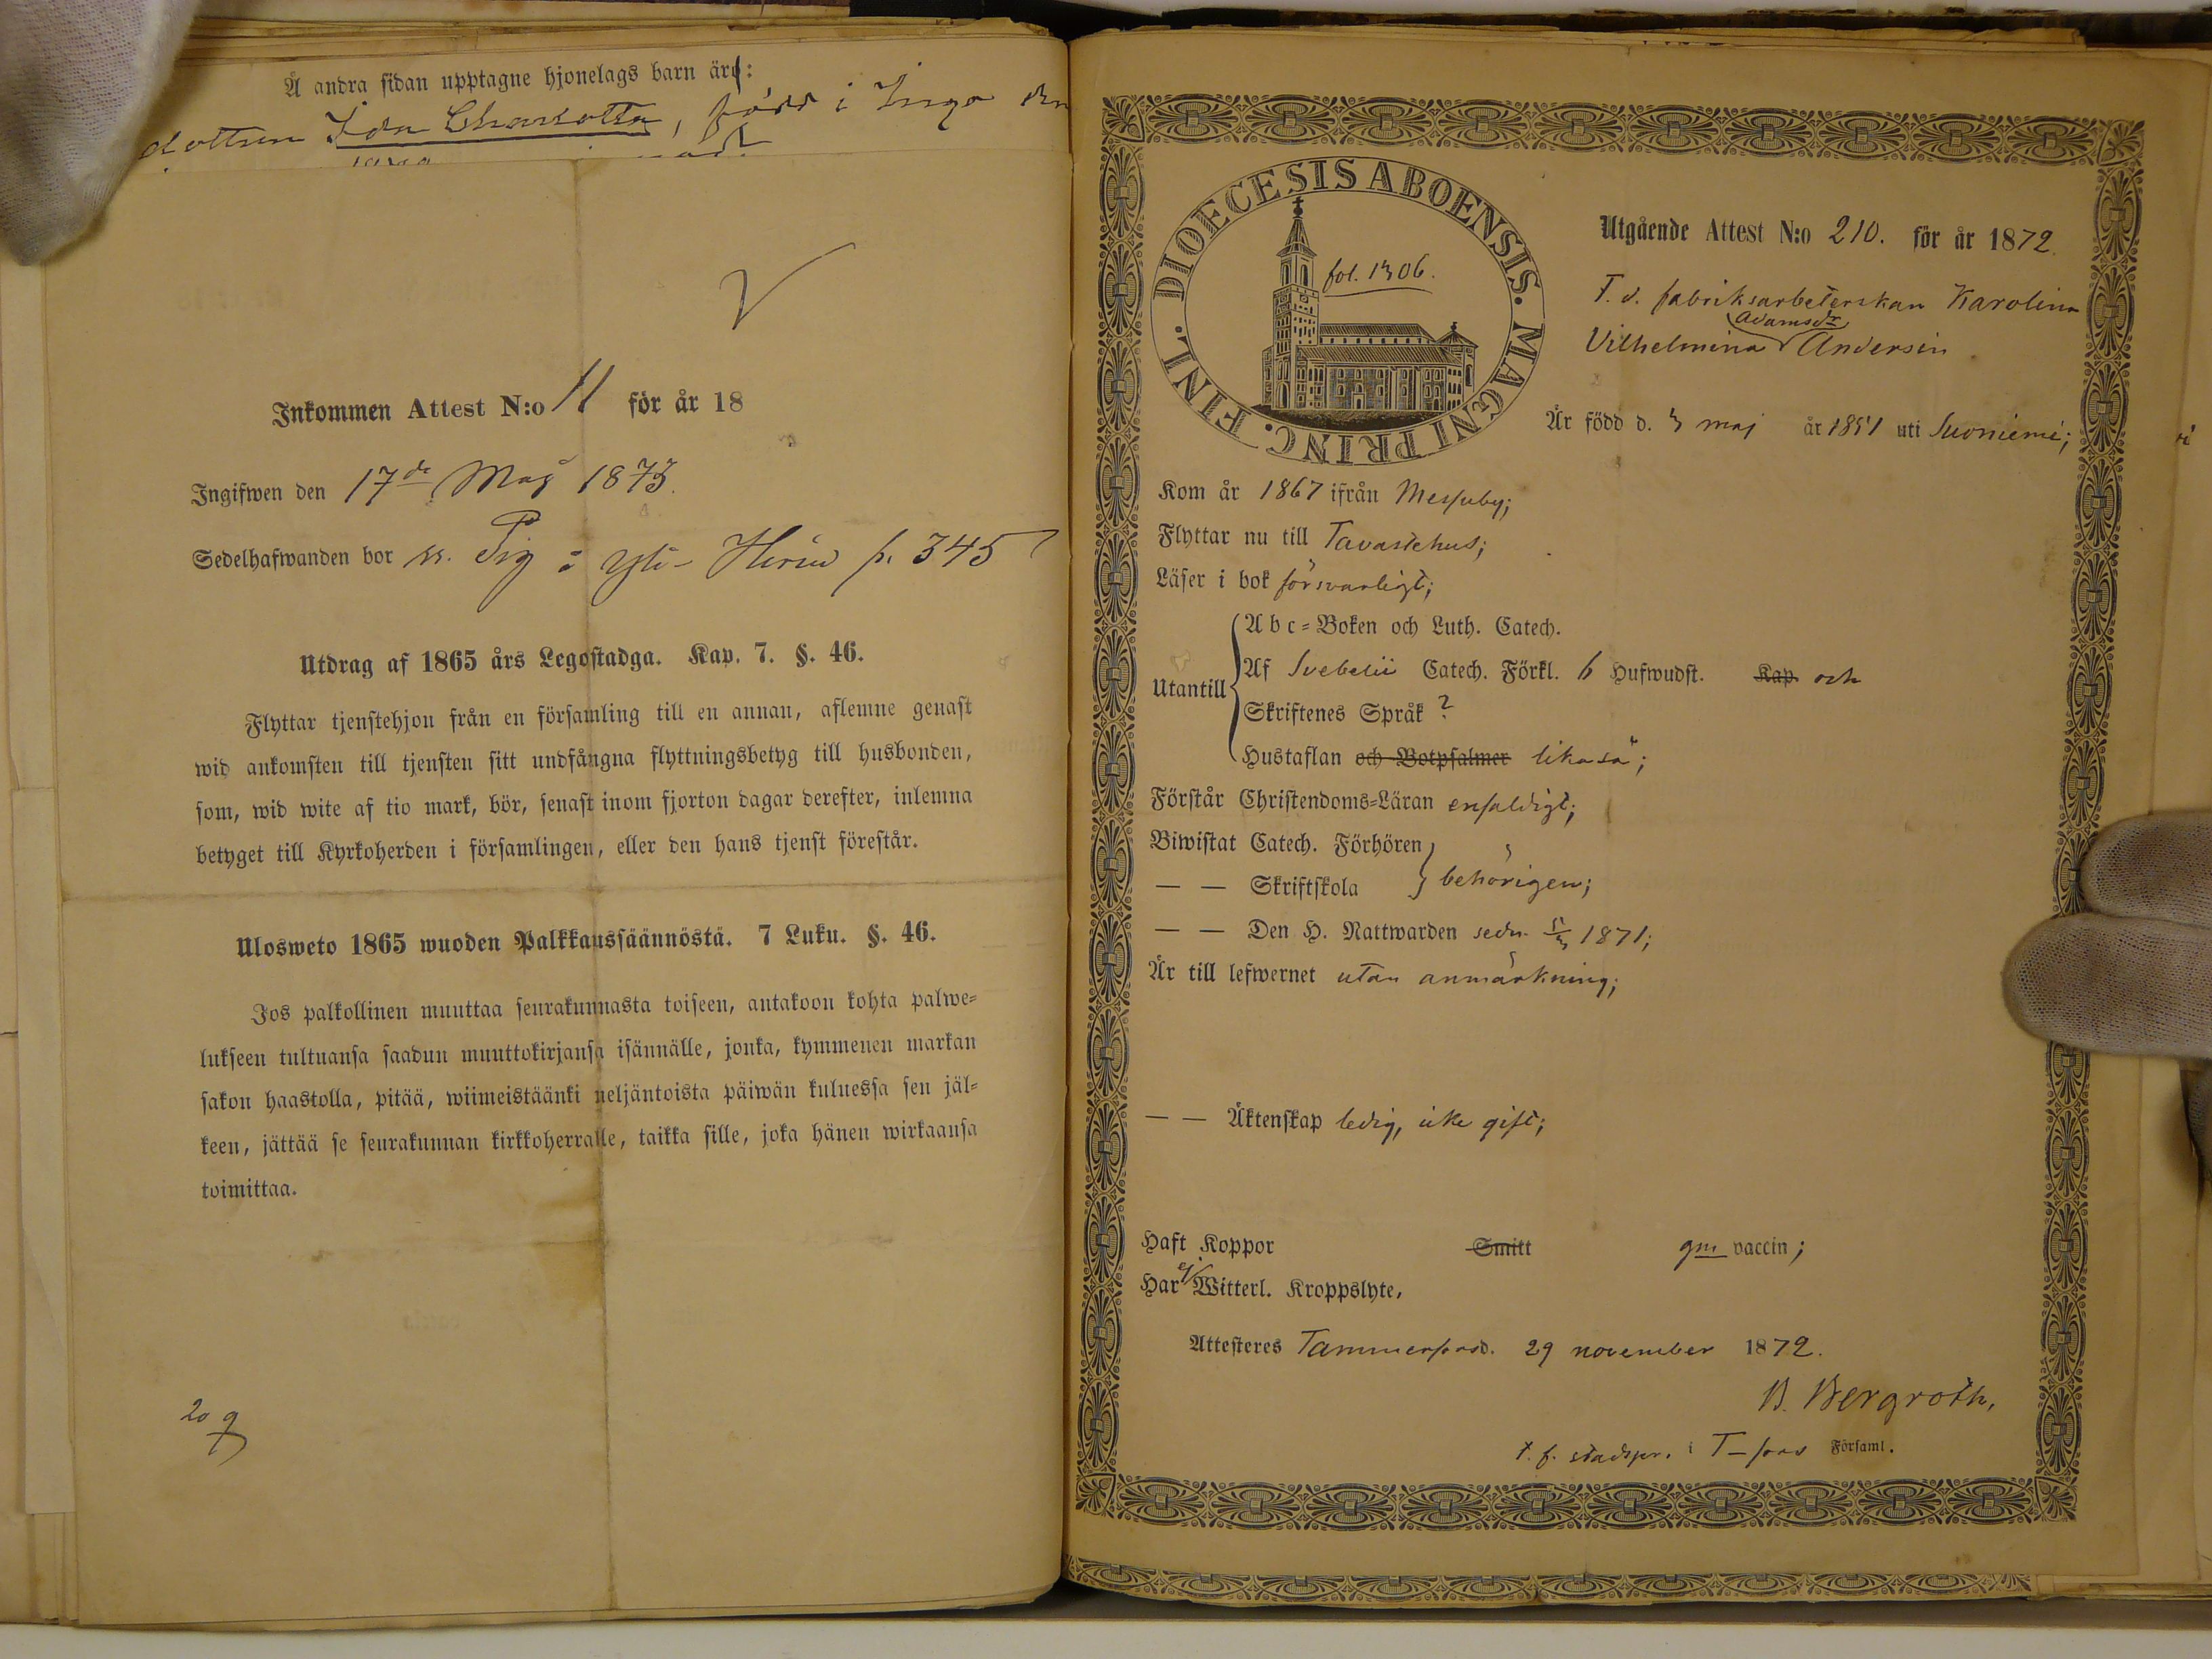 Å andra sidan upptagne hjonelags barn är:
dottren Ida Charlotta, född i Ingo den
Inkommen Attest N:o 11 för år 18
Ingifwen den 17de Maj 1873.
Sedelhafwanden bor ss. Pig å Yli- p. 345
Utdrag af 1865 års Legostadga. Kap. 7. §. 46.
Flyttar tjenstehjon från en församling till en annan, aflemne genast
wid ankomsten till tjensten sitt undfångna flyttningsbetyg till husbonden,
som, wid wite af tio mark, bör, senast inom fjorton dagar derefter, inlemna
betyget till Kyrkoherden i församlingen, eller den hans tjenst förestår.
Ulosweto 1865 wuoden Palkkaussäännöstä. 7 Luku. §. 46.
Jos palkollinen muuttaa seurakunnasta toiseen, antakoon kohta palwe=
lukseen tultuansa saadun muuttokirjansa isännälle, jonka, kymmenen markan
sakon haastolla, pitää, wiimeistäänki neljäntoista päiwän kuluessa sen jäl=
keen, jättää se seurakunnan kirkkoherralle, taikka sille, joka hänen wirkaansa
toimittaa.
20
DIOECESIS ABOENSIS. MAGNI PRINC. FINL.
fol. 1306.
Utgående Attest N:o 210. för år 1872.
F. d. fabriksarbeterskan Karolina
Adamsdr
Vilhelmina Andersin
Är född d. 3 maj år 1851 uti Suoniemi;
Kom år 1867 ifrån Messuby;
Flyttar nu till Tavastehus;
Läser i bok försvarligt;
Utantill
Abc=Boken och Luth. Catech.
Af Svebelii Catech. Förkl. 6 Hufwudst. Kap. och
Skriftenes Språk ?
Hustaflan och Botpsalmer likaså;
Förstår Christendoms=Läran enfaldigt;
Biwistat Catech. Förhören
— — Skriftskola behörigen;
— — Den H. Nattwarden sedn. 5/3 1871;
Är till lefwernet utan anmärkning;
— — Äktenskap ledig, icke gift;
Haft Koppor Smitt gm vaccin;
Har ej Witterl. Kroppslyte,
Attesteres Tammerfors d. 29 november 1872.
B. Bergroth,
t. f. stadspr. i T–fors Församl.